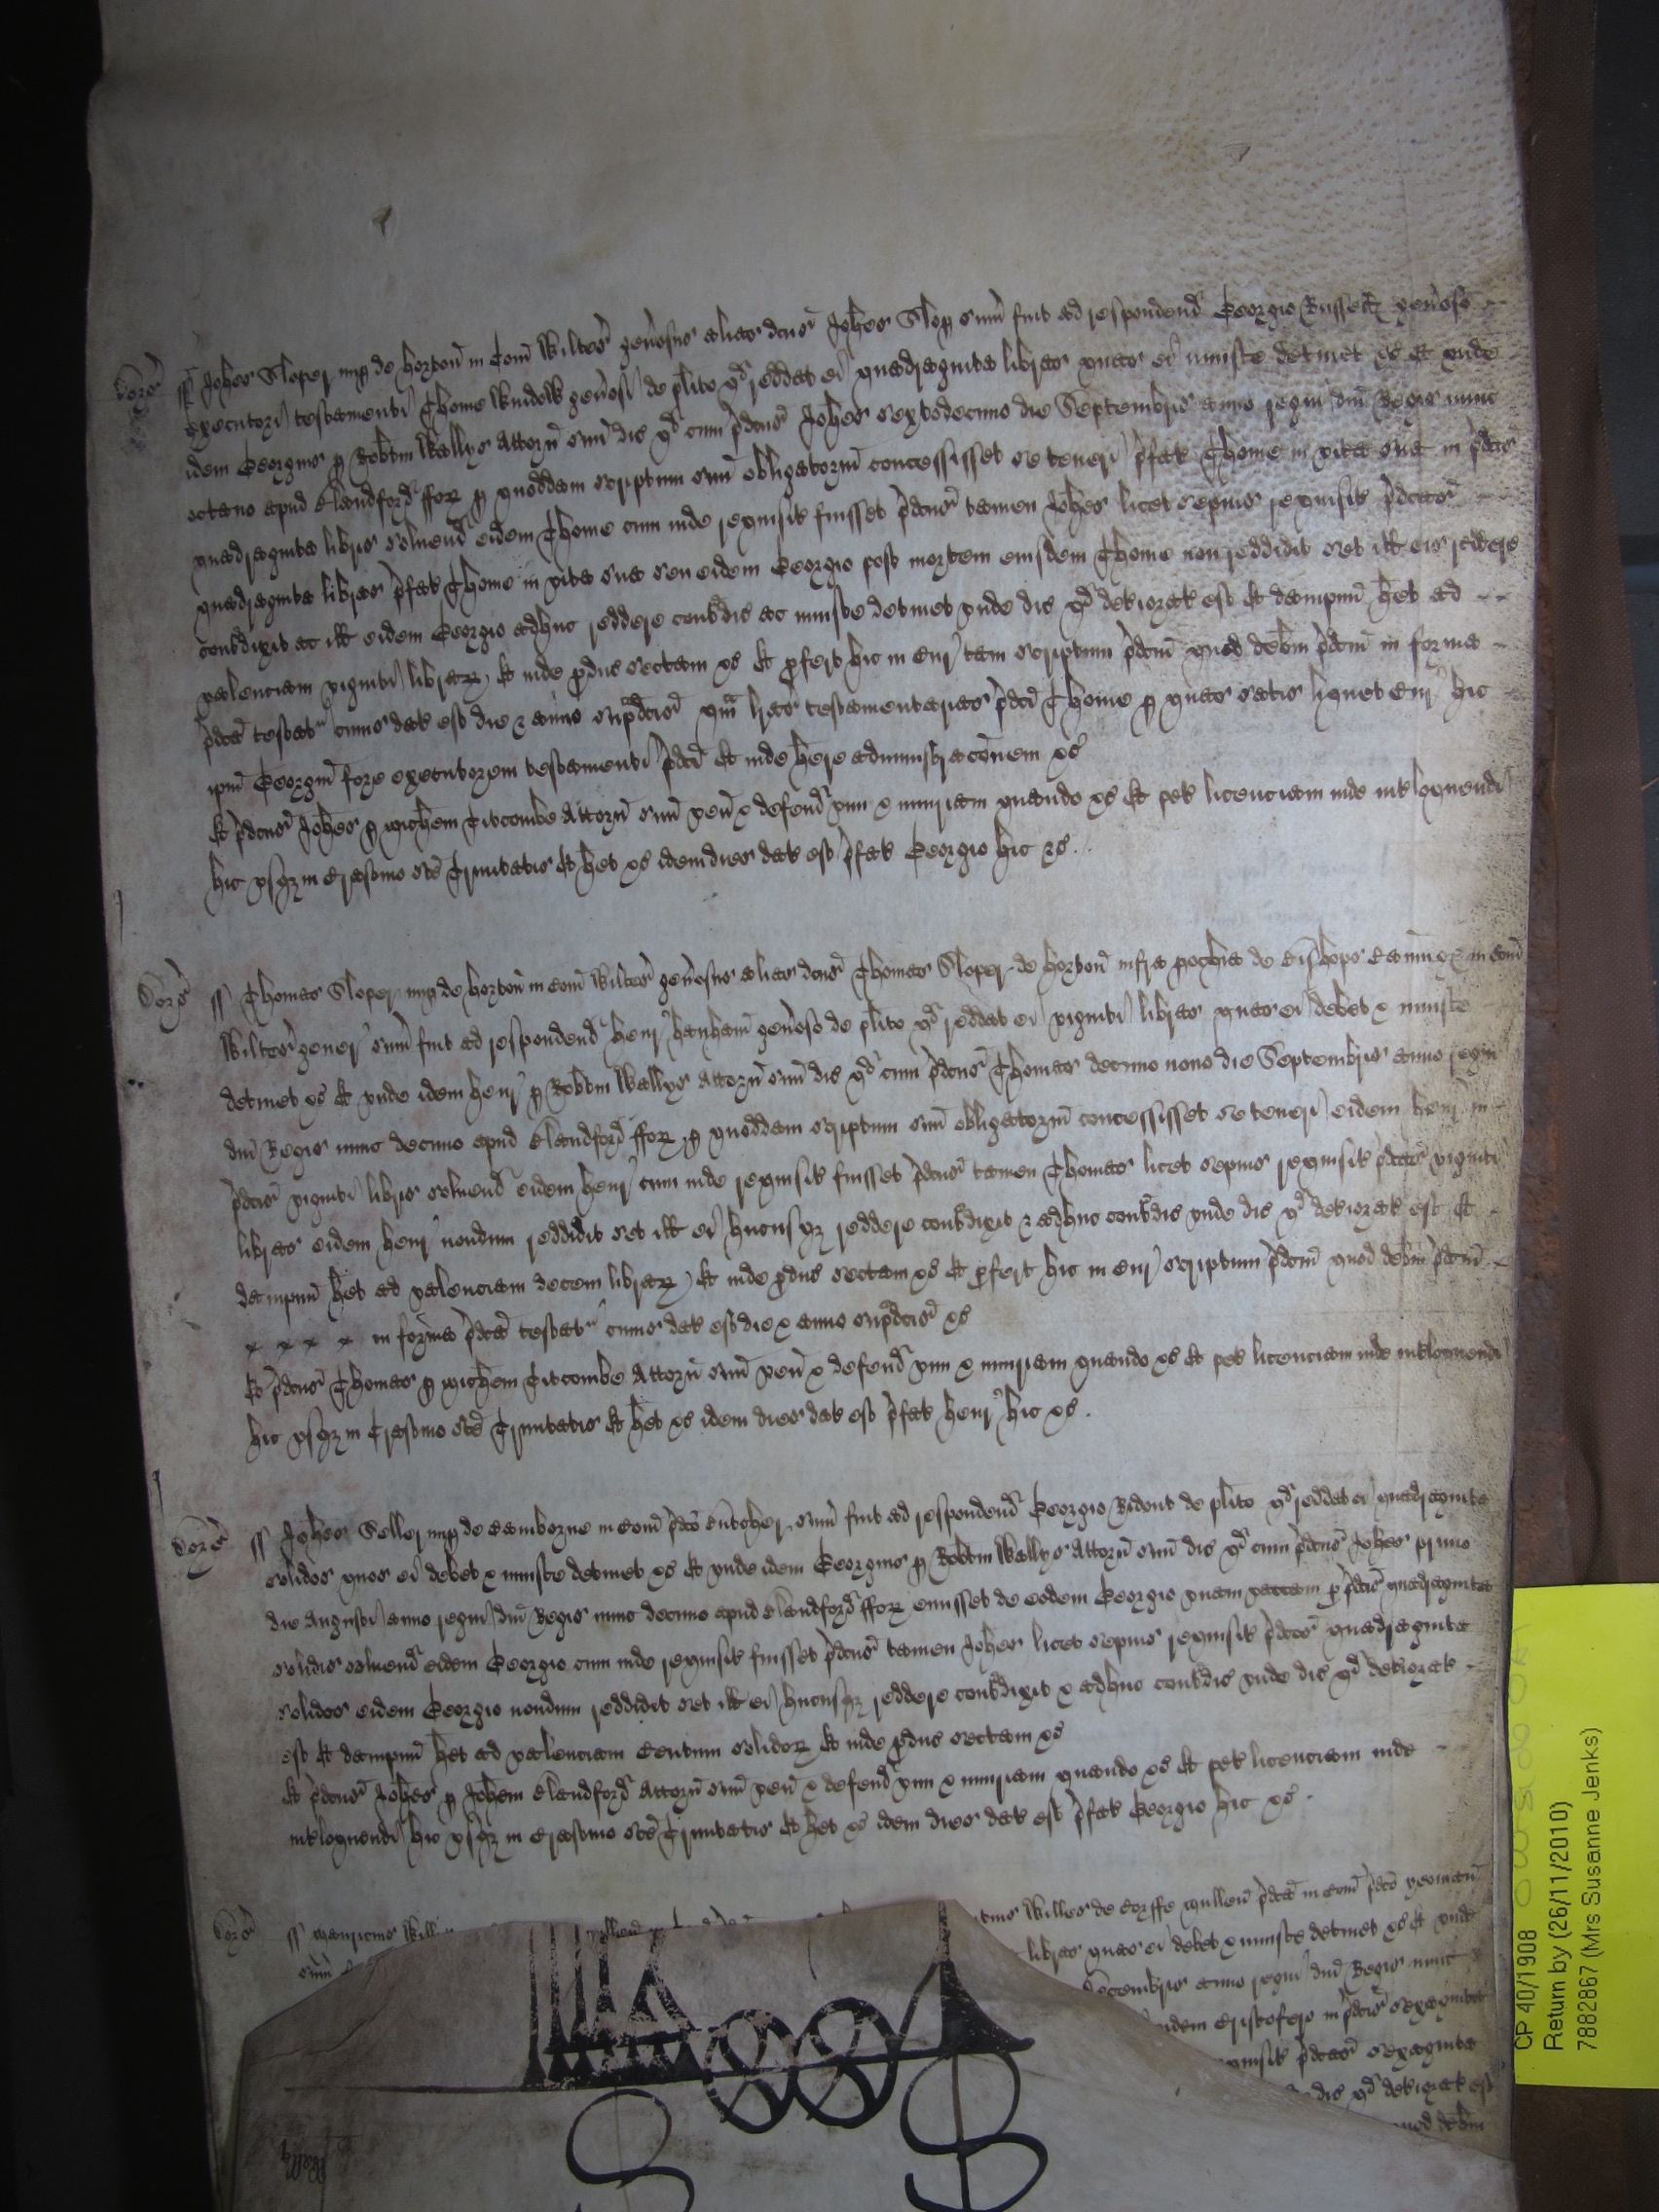 Dors̃ ss Joh̃es Sloper nup de Horton̄ in Com̄ Wiltes̃ gen̄osus alias dcũs Joh̃es Slop sum̄ fuit ad respondend̃ Georgio Russell gen̄oso
executori testamenti Thome
gen̄osi de pl̃ito qd̃ reddat ei quadraginta libras quas ei iniuste detinet &c̃ Et unde
idem Georgius p Rob̃tm Wallys Attorn̄ suu̅ dic̃ qd̃ cum p̃dc̃us Joh̃es sextodecimo die Septembris anno regni dn̄i Regis nunc
octavo apud Blandford̃ fforu̅ p quoddam scriptum suu̅ obligatoriu̅ concessisset se teneri p̃fat̃ Thome in vita sua in p̃dc̃is
quadraginta libris solvend̃ eidem Thome cum inde requisit̃ fuisset p̃dc̃us tamen Joh̃es licet sepius requisit̃ p̃dc̃as
quadraginta libras p̃fat̃ Thome in vita sua seu eidem Georgio post mortem eiusdem Thome non reddidit set ill̃ eis redd̃e
cont̃dixit ac ill̃ eidem Georgio adhuc reddere cont̃dic̃ ac iniuste detinet unde dic̃ qd̃ det̃iorat̃ est Et dampnu̅ h̃et ad
valenciam viginti librar̃ Et inde p̃duc̃ sectam &c̃ Et p̃fert hic in Cur̃ tam scriptum p̃dc̃m quod deb̃m p̃dc̃m in forma
p̃dc̃a testat̃ cuius dat̃ est die & anno sup̃dc̃is qm̃ l̃ras testamentarias p̃dc̃i Thome p quas satis liquet Cur̃ hic
ip̃m Georgiu̅ fore executorem testamenti p̃dc̃i Et inde h̃ere administrac̃onem &c̃
Et p̃dc̃us Joh̃es p Mich̃em Titcombe Attorn̄ suu̅ ven̄ & defend̃ vim & iniuriam quando &c̃ Et pet̃ licenciam inde int̃loquendi
hic usqz in Crastino sc̃e Trinitatis Et h̃et &c̃ idem dies dat̃ est p̃fat̃ Georgio hic &c̃
Dors̃ ss Thomas Sloper nup de Horton̄ in Com̄ Wiltes̃ gen̄osus alias dc̃us Thomas Sloper de Horton̄ infra pochia de Bisshops Cannyngz in Com̄
Wiltes̃ gener̃ sum̄ fuit ad respondend̃ Henr̃ Hanham̄ gen̄oso de pl̃ito qd̃ reddat ei viginti libras quas ei debet & iniuste
detinet &c̃ Et unde idem Henr̃ p Rob̃tm Wallys Attorn̄ suu̅ dic̃ qd̃ cum p̃dc̃us Thomas decimo nono die Septembris anno regni
dn̄i Regis nunc decimo apud Blandford̃ fforu̅ p quoddam scriptum suu̅ obligatoriu̅ concessisset se teneri eidem Henr̃ in
p̃dc̃is viginti libris solvend̃ eidem Henr̃ cum inde requisit̃ fuisset p̃dc̃us tamen Thomas licet sepius requisit̃ p̃dc̃as viginti
libras eidem Henr̃ nondum reddidit set ill̃ ei hucusqz reddere cont̃dixit & adhuc cont̃dic̃ unde dic̃ qd̃ det̃iorat̃ est Et
dampnu̅ h̃et ad valenciam decem librar̃ Et inde p̃duc̃ sectam &c̃ Et p̃fert hic in Cur̃ scriptum p̃dc̃m quod deb̃m p̃dc̃m
x x x x in forma p̃dc̃a testat̃ cuius dat̃ est die & anno sup̃dc̃is &c̃
Et p̃dc̃us Thomas p Mich̃em Titcombe Attorn̄ suu̅ ven̄ & defend̃ vim & iniuriam quando &c̃ Et pet̃ licenciam inde int̃loquendi
hic usqz in Crastino sc̃e Trinitatis Et h̃et &c̃ idem dies dat̃ est p̃fat̃ Henr̃ hic &c̃
Dors̃ ss Joh̃es Seller nup de Camborne in Com̄ p̃dc̃o Butcher sum̄ fuit ad respondend̃ Georgio Ridout de pl̃ito qd̃ reddat ei quadraginta
solidos quos ei debet & iniuste detinet &c̃ Et unde idem Georgius p Rob̃tm Wallys Attorn̄ suu̅ dic̃ qd̃ cum p̃dc̃us Joh̃es primo
die Augusti anno regni dn̄i Regis nunc decimo apud Blandford̃ fforu̅ emisset de eodem Georgio unam vaccam p p̃dc̃is quadraginta
solidis solvend̃ eidem Georgio cum inde requisit̃ fuisset p̃dc̃us tamen Joh̃es licet sepius requisit̃ p̃dc̃os quadraginta
solidos eidem Georgio nondum reddidit set ill̃ ei hucusqz reddere cont̃dixit & adhuc cont̃dic̃ unde dic̃ qd̃ det̃iorat̃
est Et dampnu̅ h̃et ad valenciam Centum solidor̃ Et inde p̃duc̃ sectam &c̃
Et p̃dc̃us Joh̃es p Joh̃em Blandford̃ Attorn̄ suu̅ ven̄ & defend̃ vim & iniuriam quando &c̃ Et pet̃ licenciam inde
int̃loquendi hic usqz in Crastino sc̃e Trinitatis Et h̃et &c̃ idem dies dat̃ est p̃fat̃ Georgio hic &c̃
Dors̃ ss Mauricius Will
Willes de Corffe Mullen̄ p̃dc̃a in Com̄ p̃dc̃o yeoman̄
sum̄
libras quas ei debet & iniuste detinet &c̃ Et unde
Decembris anno regni dn̄i Regis nunc
eidem Cristofero in p̃dc̃is sexaginta
requisit̃ p̃dc̃as sexaginta
dic̃ qd̃ det̃iorat̃ est
quod deb̃m
CP 40/1908
Return by (26/11/2010)
7882867 (Mrs Susanne Jenks)